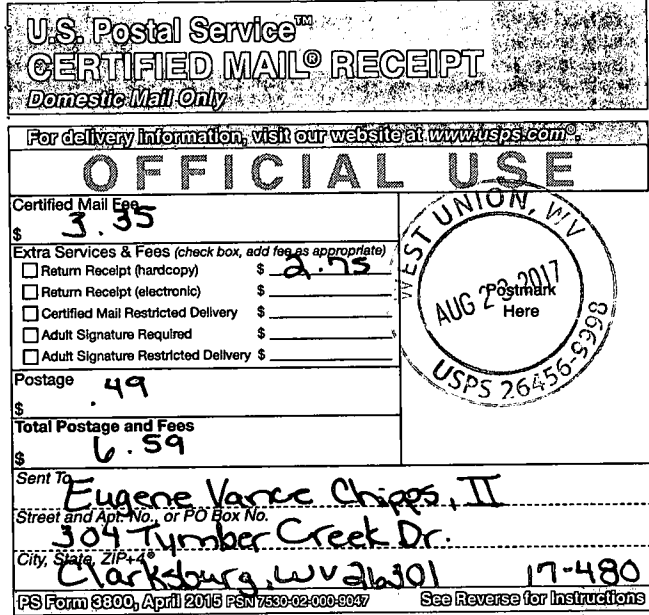 U.S. Postal Service™
CERTIFIED MAIL® RECEIPT
Domestic Mail Only
For delivery information, visit our website at www.usps.com®.
OFFICIAL USE
Certified Mail Fee
$ 3.35
Extra Services & Fees (check box, add fee as appropriate)
Return Receipt (hardcopy) $ 2.75
Return Receipt (electronic) $
Certified Mail Restricted Delivery $
Adult Signature Required $
Adult Signature Restricted Delivery $
Postage
$ .49
Total Postage and Fees
$ 6.59
WEST UNION, WV
AUG 23 2017
Postmark
Here
USPS 26456-9998
Sent To
Eugene Vance Chipps, II
Street and Apt. No., or PO Box No.
304 Tymber Creek Dr.
City, State, ZIP+4®
Clarksburg, WV 26301 17-480
PS Form 3800, April 2015 PSN 7530-02-000-9047 See Reverse for Instructions